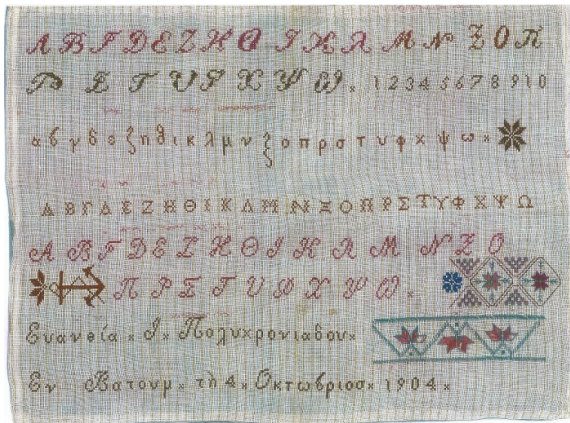 Α Β Γ Δ Ε Ζ Η Θ Ι Κ Λ Μ Ν Ξ Ο Π
Ρ Σ Τ Υ Φ Χ Ψ Ω × 1 2 3 4 5 6 7 8 9 10
α β γ δ ε ζ η θ ι κ λ μ ν ξ ο π ρ σ τ υ φ χ ψ ω ×
Α Β Γ Δ Ε Ζ Η Θ Ι Κ Λ Μ Ν Ξ Ο Π Ρ Σ Τ Υ Φ Χ Ψ Ω
Α Β Γ Δ Ε Ζ Η Θ Ι Κ Λ Μ Ν Ξ Ο
Π Ρ Σ Τ Υ Φ Χ Ψ Ω ×
Ευανθία × Ι × Πολυχρονιαδου ×
Εν Βατουμ × τη 4 × Οκτωβριοσ × 1904 ×